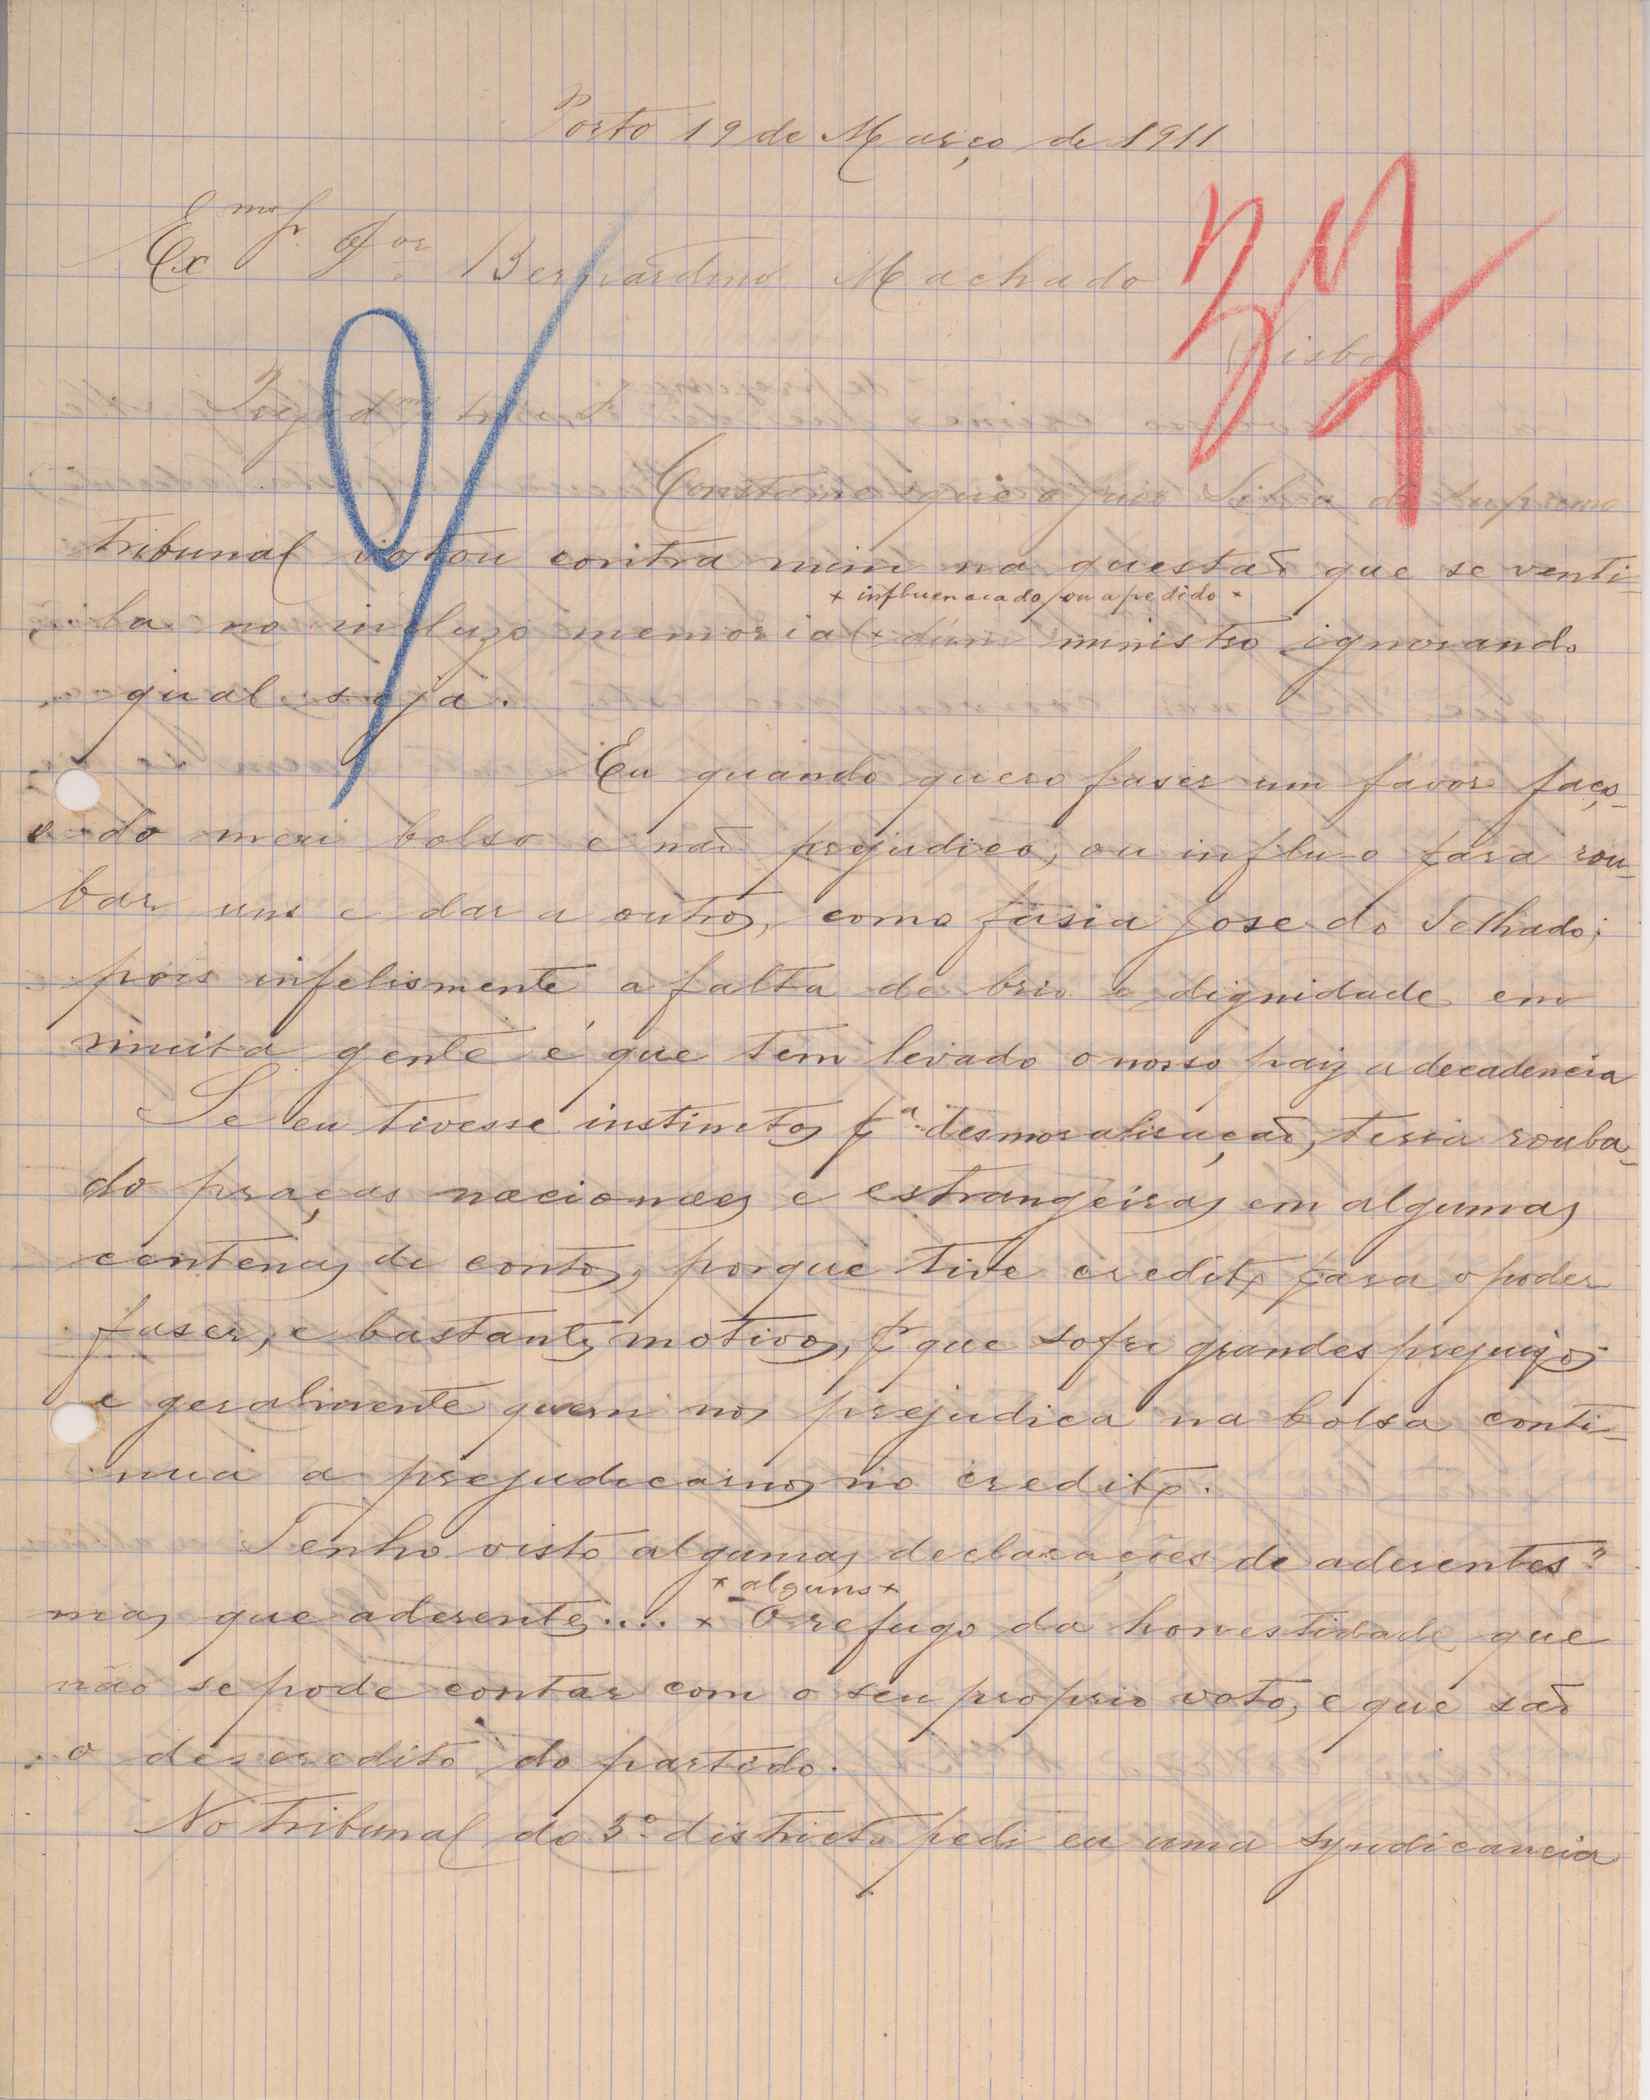 Porto 19 de Março de 1911
Exmo Sr. Dor Bernardino Machado
Lisboa
Constame que o juis Silva do Supremo
Tribunal votou contra mim na questaõ que se venti-
* influenciado, ou a pedido *
la no incluzo memorial * dum ministro ignorando
qual seja.
Eu quando quero faser um favor faço-
o do meu bolso e naõ prejudico, ou influo para rou-
bar uns e dar a outros, como fasia Jose do Telhado;
pois infelismente a falta de brio e dignidade em
muita gente é que tem levado o nosso paiz a decadencia
Se eu tivesse instinctos pa desmoralisaçaõ, teria rouba-
do praças nacionaes e estrangeiras em algumas
centenas de contos, porque tive credito para o poder
faser, e bastantes motivos, pr que sofri grandes prejuizos
e geralmente quem nos prejudica na bolsa conti-
nua a prejudicarnos no credito.
Tenho visto algumas declarações de aderentes?
* alguns *
mas que aderentes.... * O refugo da honestidade que
não se pode contar com o seu proprio voto, e que saõ
o descredito do partido.
No Tribunal do 3º districto pedi eu uma syndicancia